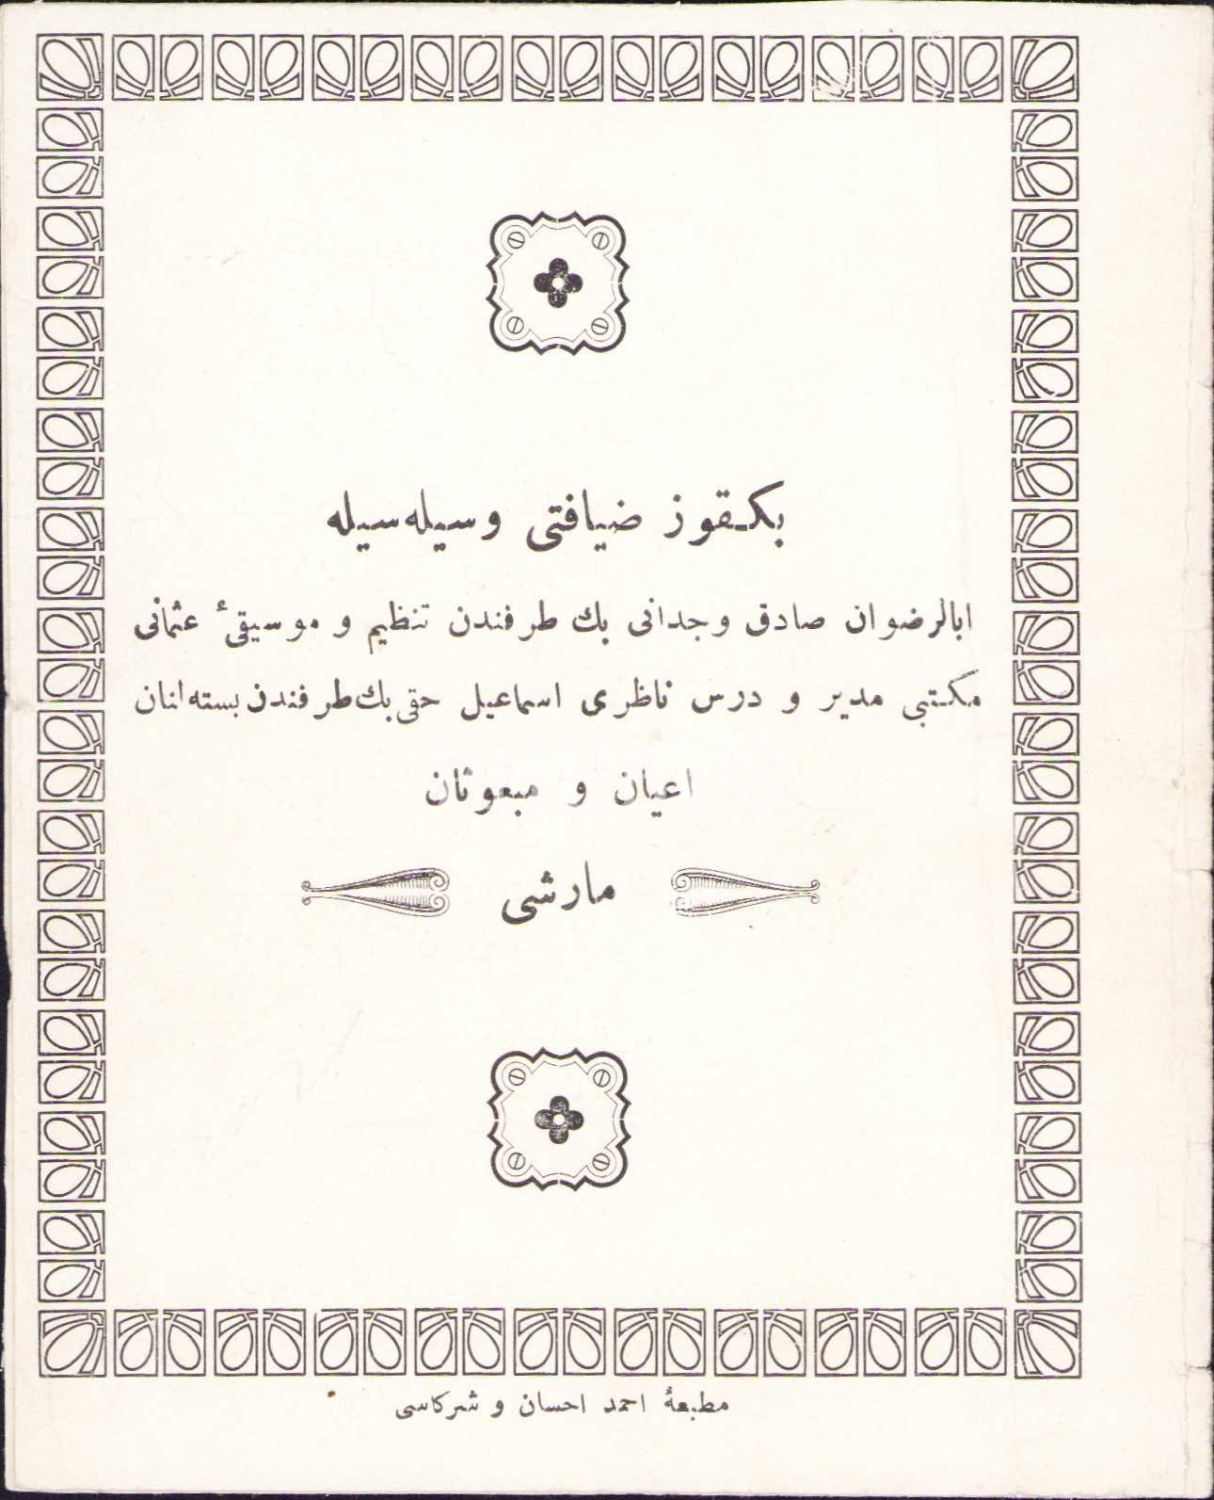 بكـقوز ضيافتى وسيله‌سيله
ابالرضوان صادق وجدانى بك طرفندن تنظيم و موسيقىٔ عثمانى
مكـتبى مدير و درس ناظرى اسماعيل حقى بك طرفندن بسته‌لنان
اعيان و مبعوثان
مارشى
مطبعهٔ احمد احسان و شركاسى